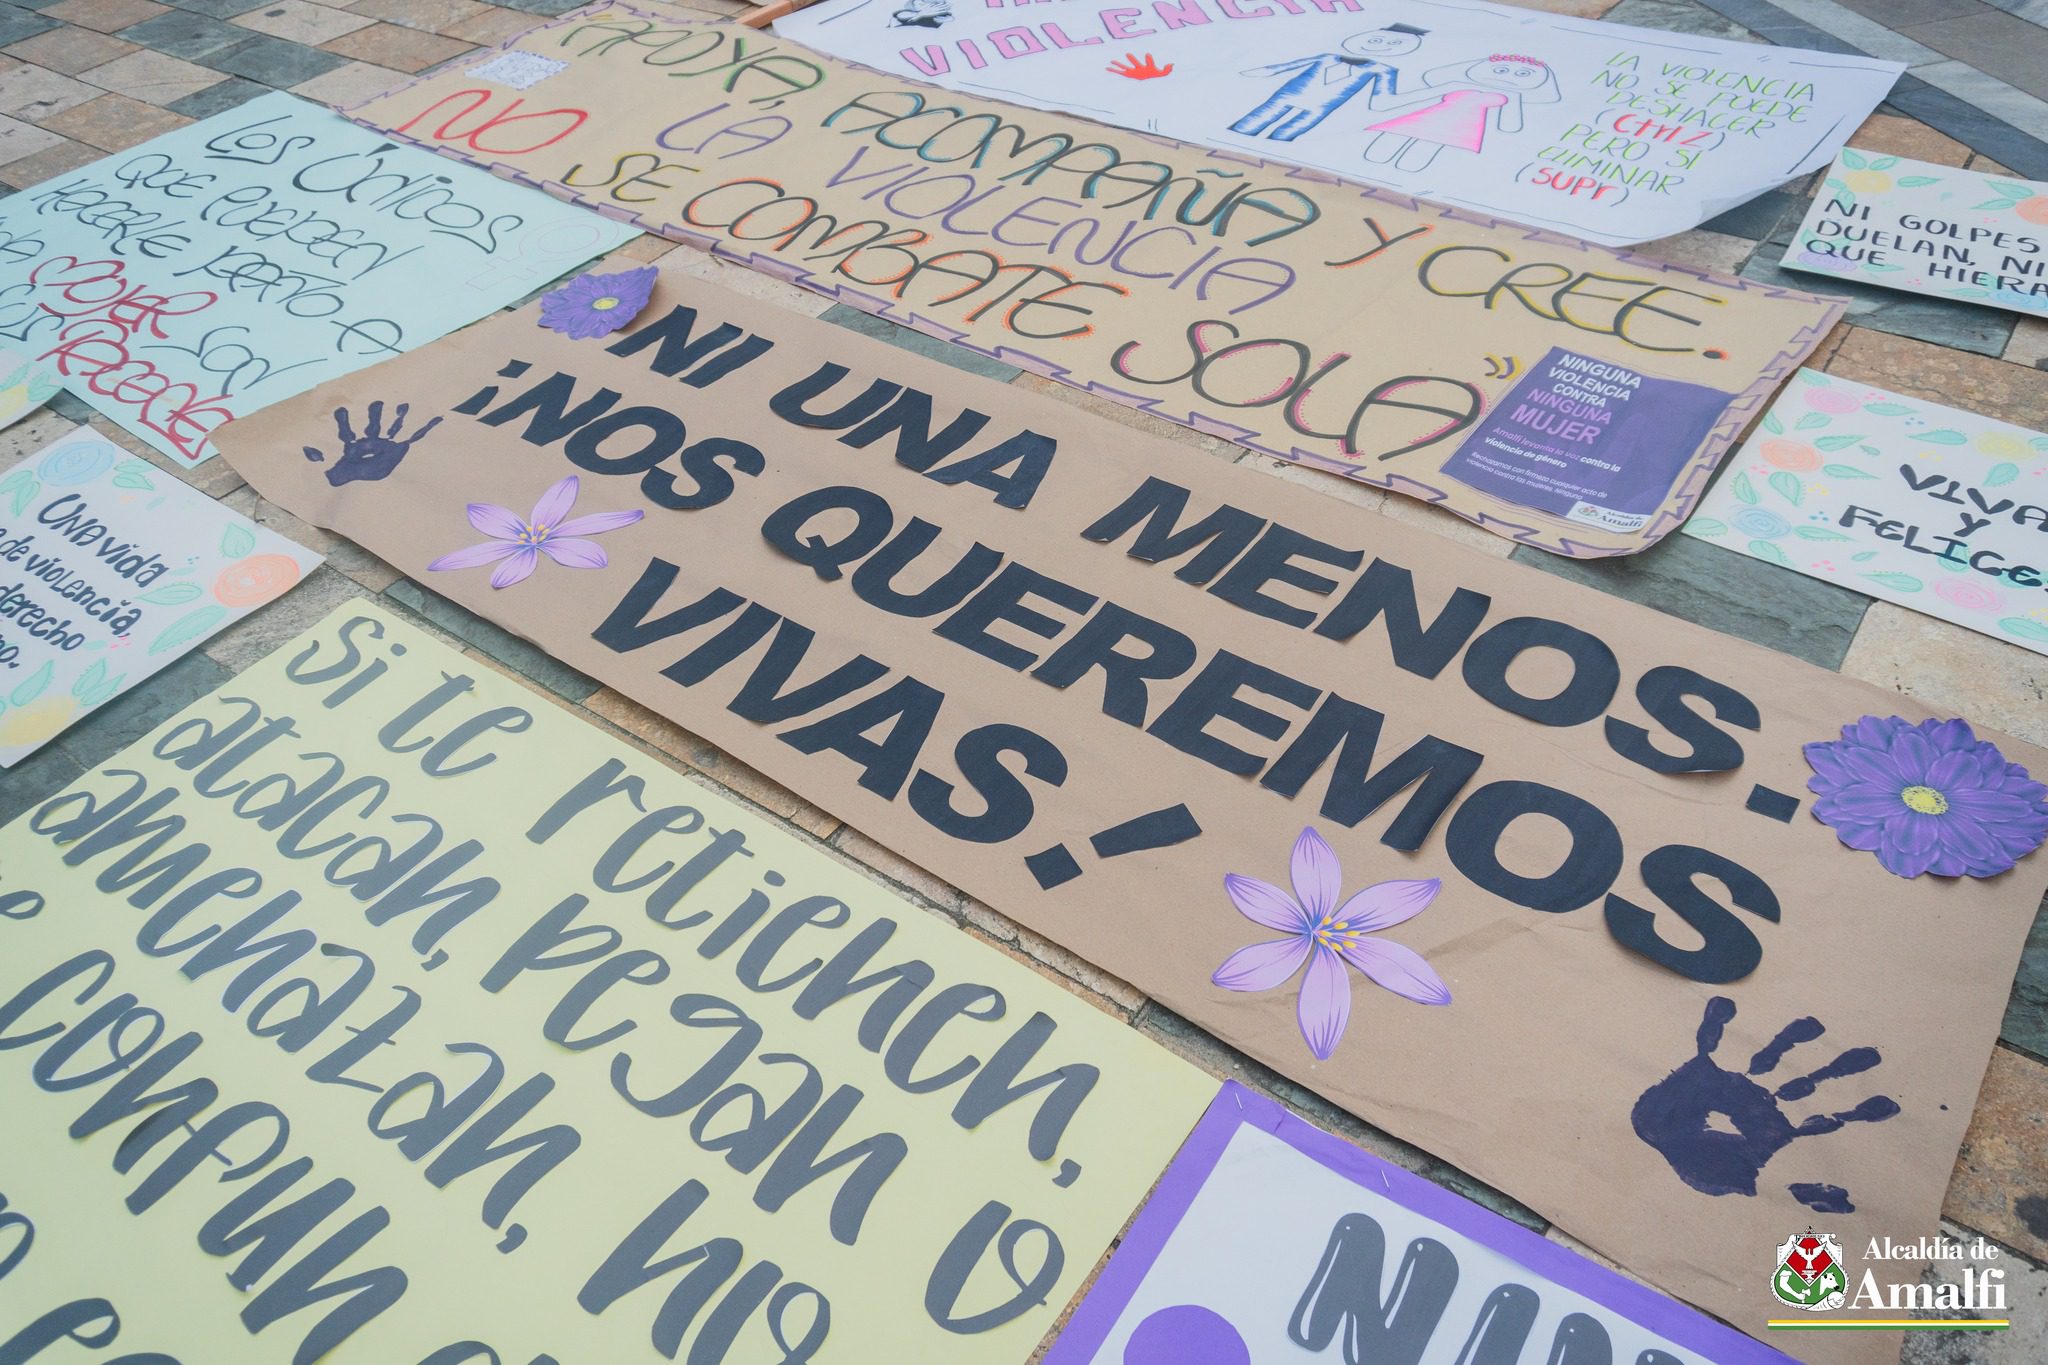 VIOLENCIA
LA VIOLENCIA
NO SE PUEDE
DESHACER
(Ctrl Z)
PERO SI
ELIMINAR
(SUPr)
"APOYA, ACOMPAÑA Y CREE.
LA VIOLENCIA
NO SE COMBATE SOLA"
NINGUNA
VIOLENCIA
CONTRA
NINGUNA
MUJER
Amalfi levanta la voz contra la
violencia de género
Rechazamos con firmeza cualquier acto de
violencia contra las mujeres. Ninguna
Alcaldía de
Amalfi
LOS ÚNICOS
QUE PUEDEN
HACERLE DAÑO A
MUJER SON
NI GOLPES
DUELAN, NI
QUE HIERA
VIVA
Y
FELICE
UNA vida
de violencia,
derecho
NI UNA MENOS.
¡NOS QUEREMOS
VIVAS!
Si te retienen,
atacan, pegan o
amenazan, no
confun
NI
Alcaldía de
Amalfi